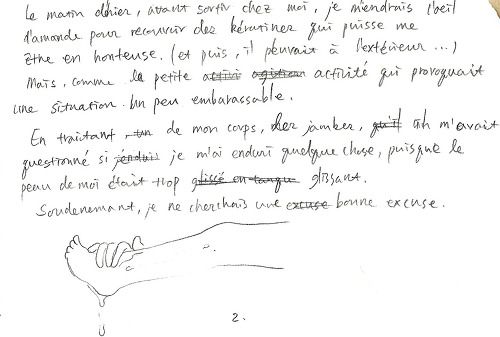 Le matin dénier, avant sortir chez moi, je miendrais l'oeil
d'amande pour recouvrir des kératines qui puisse me
être en honteuse. (et puis, il peuvait à l'extérieur...)
Mais, comme la petite activité qui provoquait
une situation un peu embarassable.
En traitant de mon corps, des jambes, m'avait
questionné si je m'ai enduit quelque chose, puisque le
peau de moi était trop glissant.
Soudenemant, je ne cherchais une bonne excuse.
2.